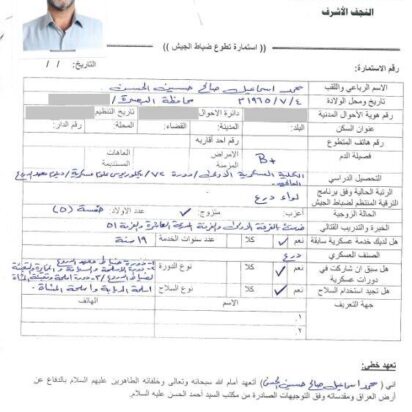 النجف الأشرف
(( استمارة تطوع ضباط الجيش ))
رقم الاستمارة:
التاريخ: / /
الاسم الرباعي واللقب محمد اسماعيل صالح حسين
تاريخ ومحل الولادة ١٩٦٥/٧/٤ محافظة البصرة
رقم هوية الأحوال المدنية دائرة الاحوال تاريخ التنظيم
عنوان السكن البلد: المدينة: القضاء: المحلة: رقم الدار:
رقم هاتف المتطوع رقم احد أقاربه
فصيلة الدم B+ الامراض المزمنة العاهات المستديمة
التحصيل الدراسي الكلية العسكرية الاولى / دورة ٧٢
الرتبة الحالية وفق برنامج الترقية المنتظم لضباط الجيش لواء درع
الحالة الزوجية اعزب: متزوج: ✓ عدد الاولاد: خمسة (٥)
الخبرة والتدريب القتالي
هل لديك خدمة عسكرية سابقة نعم ✓ كلا عدد سنوات الخدمة ١٩ سنة
الصنف العسكري درع
هل سبق ان شاركت في دورات عسكرية نعم ✓ كلا نوع الدورة
هل تجيد استخدام السلاح نعم ✓ كلا نوع السلاح
جهة التعريف الاسم الهاتف
تعهد خطي:
اني (محمد اسماعيل صالح حسين) أتعهد أمام الله سبحانه وتعالى وخلفائه الطاهرين عليهم السلام بالدفاع عن
أرض العراق ومقدساته وفق التوجيهات الصادرة من مكتب السيد أحمد الحسن عليه السلام.